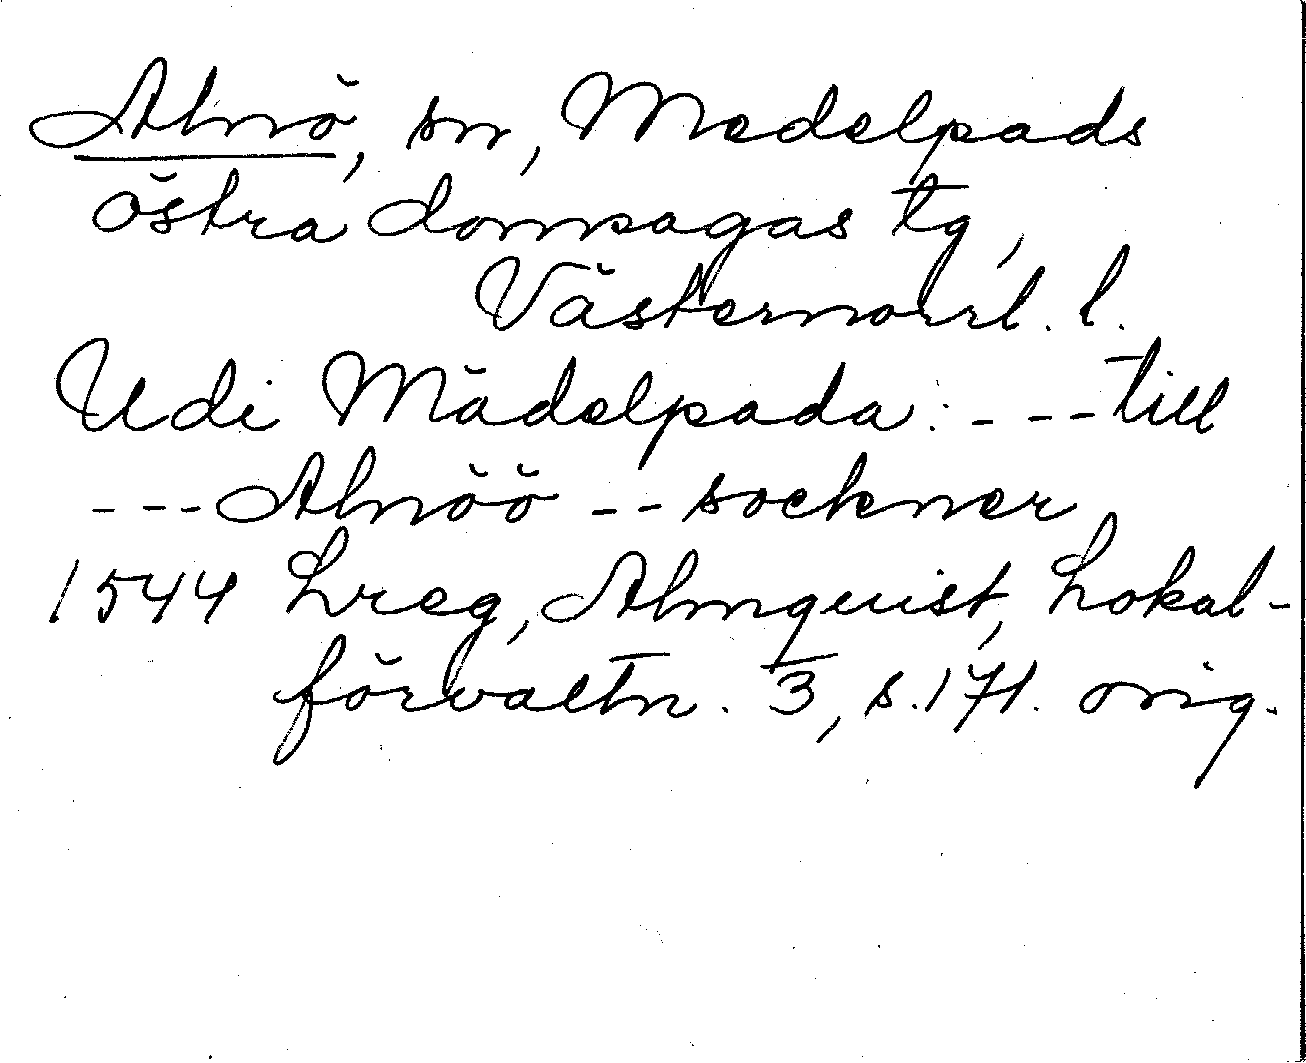 Alnö, sn, Medelpads
östra domsagas tg,
Västernorrl. l.
Udi Mädelpada: - - - till
- - - Alnöö - - sockner
1544 Lreg, Almquist, Lokal-
förvaltn. 3, s. 171. orig.